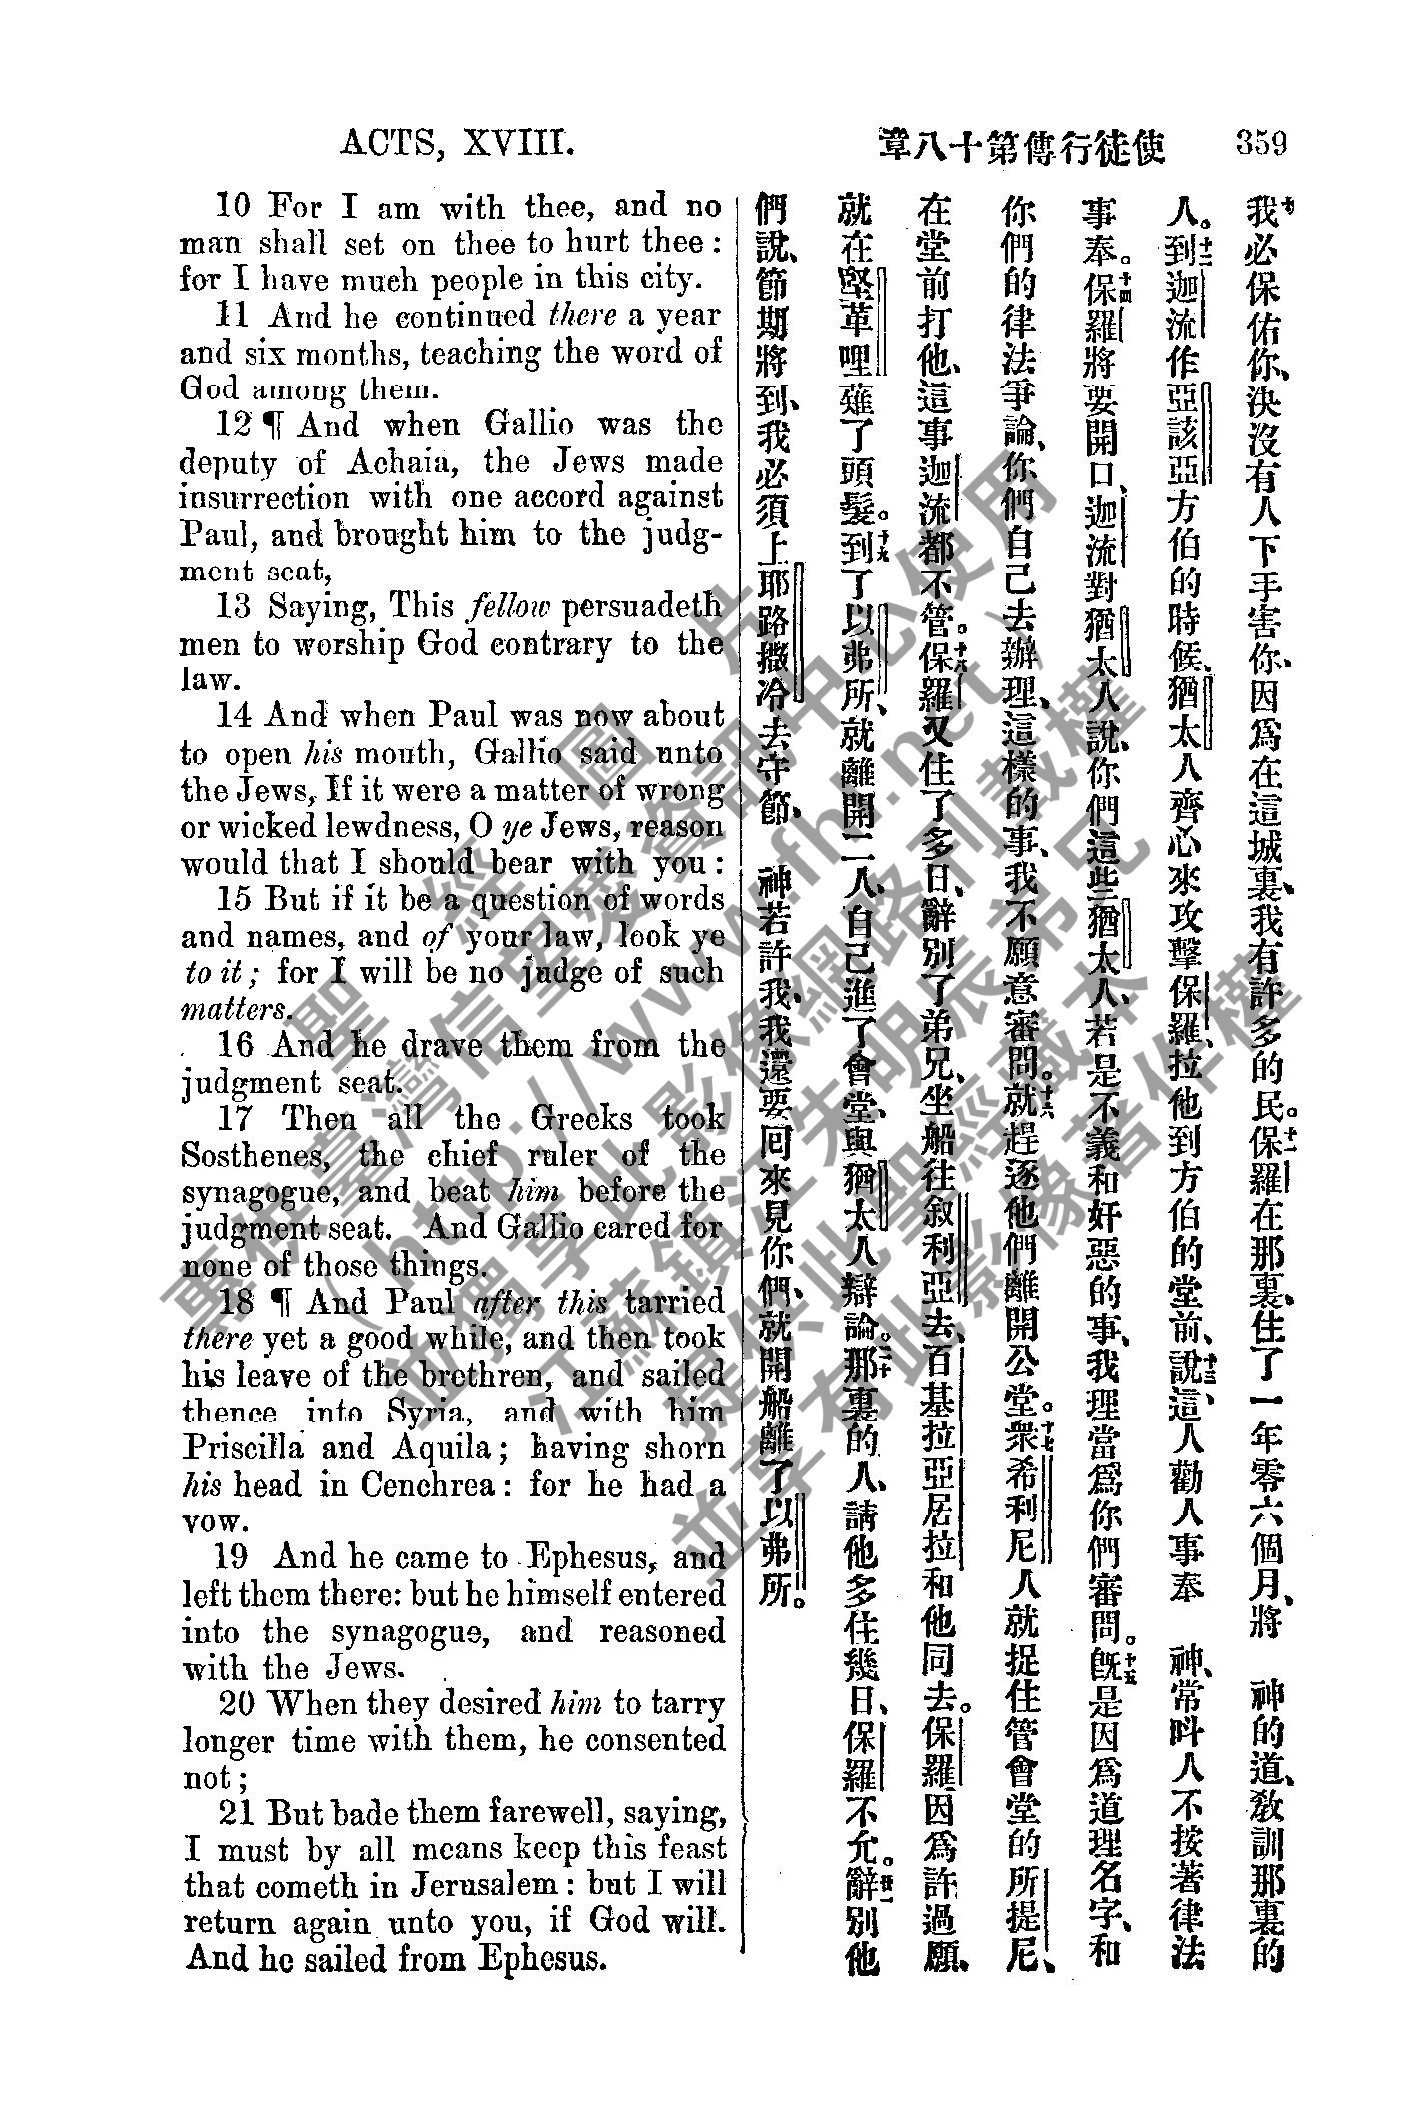 ACTS, XVIII.
使徒行傳第十八章
359
10 For I am with thee, and no
man shall set on thee to hurt thee :
for I have much people in this city.
11 And he continued there a year
and six months, teaching the word of
God among them.
12 ¶ And when Gallio was the
deputy of Achaia, the Jews made
insurrection with one accord against
Paul, and brought him to the judg-
ment seat,
13 Saying, This fellow persuadeth
men to worship God contrary to the
law.
14 And when Paul was now about
to open his mouth, Gallio said unto
the Jews, If it were a matter of wrong
or wicked lewdness, O ye Jews, reason
would that I should bear with you :
15 But if it be a question of words
and names, and of your law, look ye
to it ; for I will be no judge of such
matters.
16 And he drave them from the
judgment seat.
17 Then all the Greeks took
Sosthenes, the chief ruler of the
synagogue, and beat him before the
judgment seat. And Gallio cared for
none of those things.
18 ¶ And Paul after this tarried
there yet a good while, and then took
his leave of the brethren, and sailed
thence into Syria, and with him
Priscilla and Aquila ; having shorn
his head in Cenchrea : for he had a
vow.
19 And he came to Ephesus, and
left them there: but he himself entered
into the synagogue, and reasoned
with the Jews.
20 When they desired him to tarry
longer time with them, he consented
not ;
21 But bade them farewell, saying,
I must by all means keep this feast
that cometh in Jerusalem : but I will
return again unto you, if God will.
And he sailed from Ephesus.
我必保佑你、決沒有人下手害你、因爲在這城裏、我有許多的民。十一保羅在那裏、住了一年零六個月、將 神的道、敎訓那裏的
人。十二到迦流作亞該亞方伯的時候、猶太人齊心來攻擊保羅、拉他到方伯的堂前、十三說這人勸人事奉 神、常呌人不按著律法
事奉。十四保羅將要開口、迦流對猶太人說、你們這些猶太人、若是不義和奸惡的事、我理當爲你們審問。十五旣是因爲道理名字、和
你們的律法爭論、你們自己去辦理、這樣的事、我不願意審問。十六就趕逐他們離開公堂。十七衆希利尼人就捉住管會堂的所提尼、
在堂前打他、這事迦流都不管。十八保羅又住了多日、辭別了弟兄、坐船往叙利亞去、百基拉亞居拉和他同去。保羅因爲許過願、
就在堅革哩薙了頭髮。十九到了以弗所、就離開二人、自己進了會堂、與猶太人辯論。二十那裏的人、請他多住幾日、保羅不允。廿一辭別他
們說、節期將到、我必須上耶路撒冷去守節、 神若許我、我還要囘來見你們、就開船離了以弗所。
聖經圖片
專供臺灣信望愛資訊中心使用
( http://www.fhl.net )
並獨享此影像網路刊載權
江蘇鎮江朱明辰弟兄
提供此聖經藏本
並享有此影像著作權